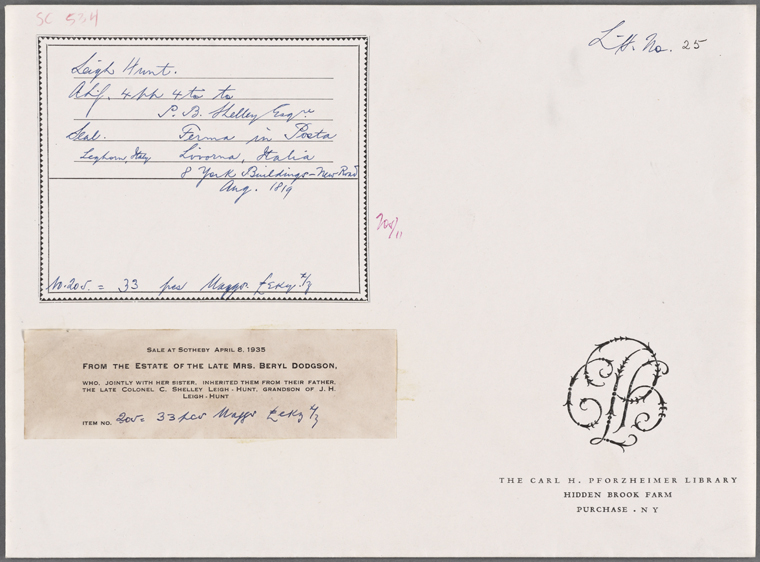 SC 534
L.H. No. 25
Leigh Hunt.
4to to
P. B. Shelley Esqre
Seal. Ferma in Posta
Leghorn, Italy Livorna, Italia
8 York Buildings - New Road
Aug. 1819
No. 205. = 33 pcs Maggs
SALE AT SOTHEBY APRIL 8, 1935
FROM THE ESTATE OF THE LATE MRS. BERYL DODGSON,
WHO, JOINTLY WITH HER SISTER, INHERITED THEM FROM THEIR FATHER,
THE LATE COLONEL C. SHELLEY LEIGH-HUNT, GRANDSON OF J. H.
LEIGH-HUNT
ITEM NO. 205 = 33 pcs Maggs
THE CARL H. PFORZHEIMER LIBRARY
HIDDEN BROOK FARM
PURCHASE . NY